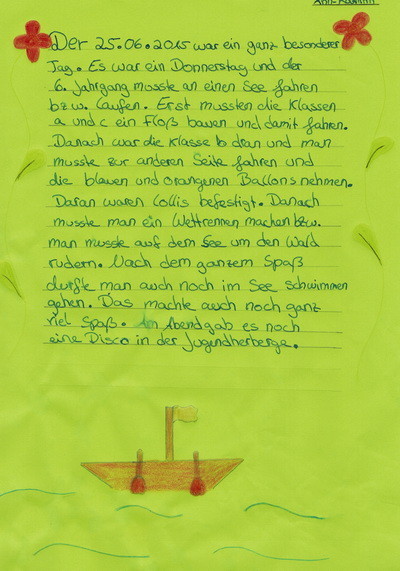 Ann-Kathrin
Der 25.06.2015 war ein ganz besonderer
Tag. Es war ein Donnerstag und der
6. Jahrgang musste an einen See fahren
bzw. laufen. Erst mussten die Klassen
a und c ein Floß bauen und damit fahren.
Danach war die Klasse b dran und man
musste zur anderen Seite fahren und
die blauen und orangenen Ballons nehmen.
Daran waren Lollis befestigt. Danach
musste man ein Wettrennen machen bzw.
man musste auf dem See um den Wald
rudern. Nach dem ganzem Spaß
durfte man auch noch im See schwimmen
gehen. Das machte auch noch ganz
viel Spaß. Am Abend gab es noch
eine Disco in der Jugendherberge.